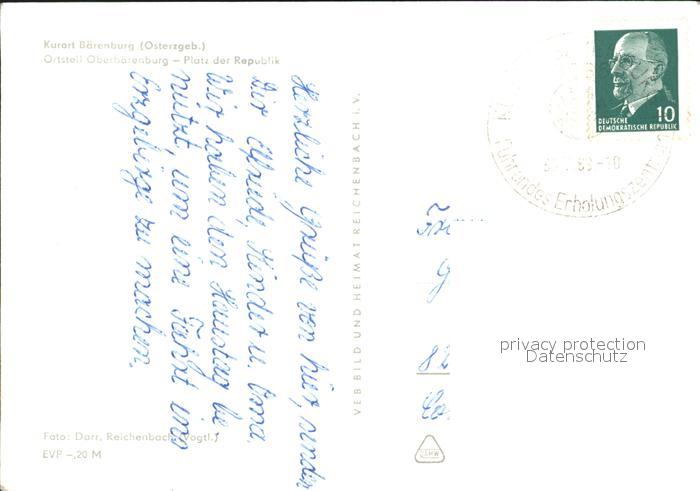 Kurort Bärenburg (Osterzgeb.)
Ortsteil Oberbärenburg — Platz der Republik
Herzliche Grüße von hier, senden
Dir Kinder u. Oma.
Wir haben den Haustag be-
nutzt, um eine Fahrt ins
Erzgebirge zu machen.
Foto: Darr, Reichenbach (Vogtl.)
EVP -,20 M
VEB BILD UND HEIMAT REICHENBACH I. V.
10
DEUTSCHE
DEMOKRATISCHE REPUBLIK
Führendes Erholungszentrum
privacy protection
Datenschutz